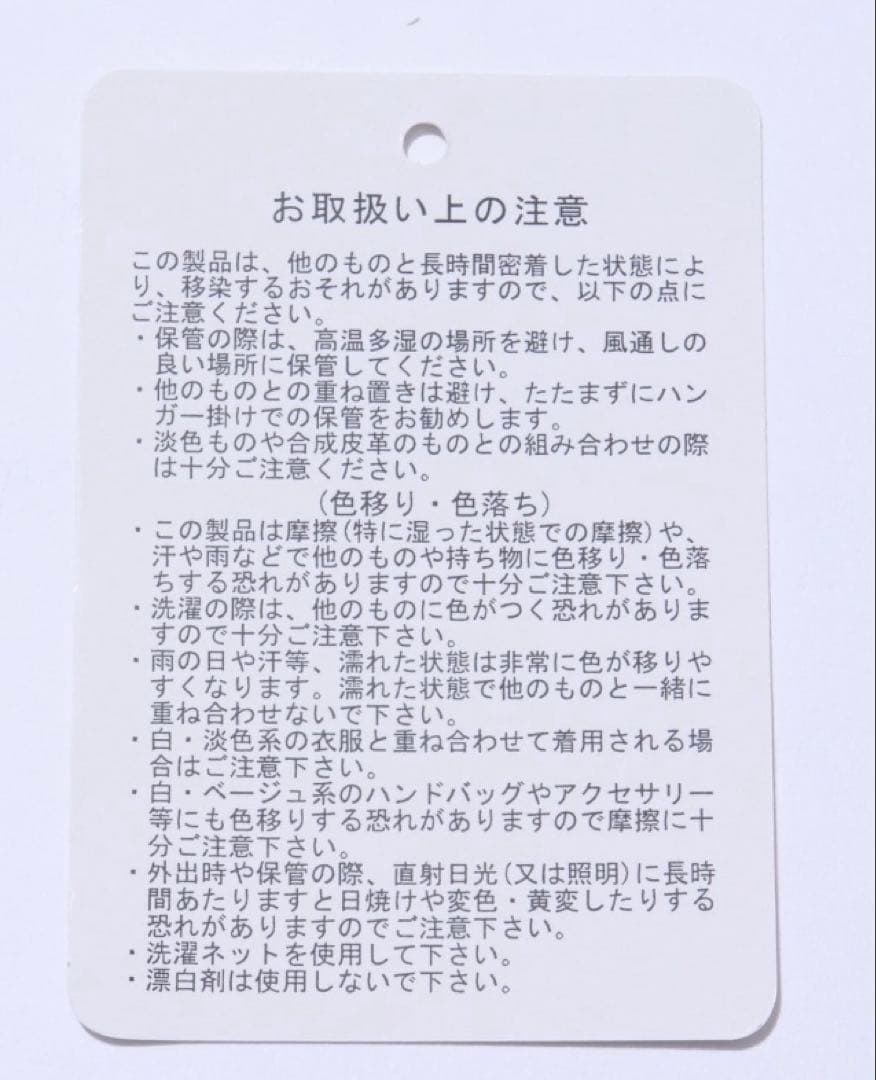 お取扱い上の注意
この製品は、他のものと長時間密着した状態によ
り、移染するおそれがありますので、以下の点に
ご注意ください。
・保管の際は、高温多湿の場所を避け、風通しの
良い場所に保管してください。
・他のものとの重ね置きは避け、たたまずにハン
ガー掛けでの保管をお勧めします。
・淡色ものや合成皮革のものとの組み合わせの際
は十分ご注意ください。
(色移り・色落ち)
・この製品は摩擦(特に湿った状態での摩擦)や、
汗や雨などで他のものや持ち物に色移り・色落
ちする恐れがありますので十分ご注意下さい。
・洗濯の際は、他のものに色がつく恐れがありま
すので十分ご注意下さい。
・雨の日や汗等、濡れた状態は非常に色が移りや
すくなります。濡れた状態で他のものと一緒に
重ね合わせないで下さい。
・白・淡色系の衣服と重ね合わせて着用される場
合はご注意下さい。
・白・ベージュ系のハンドバッグやアクセサリー
等にも色移りする恐れがありますので摩擦に十
分ご注意下さい。
・外出時や保管の際、直射日光(又は照明)に長時
間あたりますと日焼けや変色・黄変したりする
恐れがありますのでご注意下さい。
・洗濯ネットを使用して下さい。
・漂白剤は使用しないで下さい。